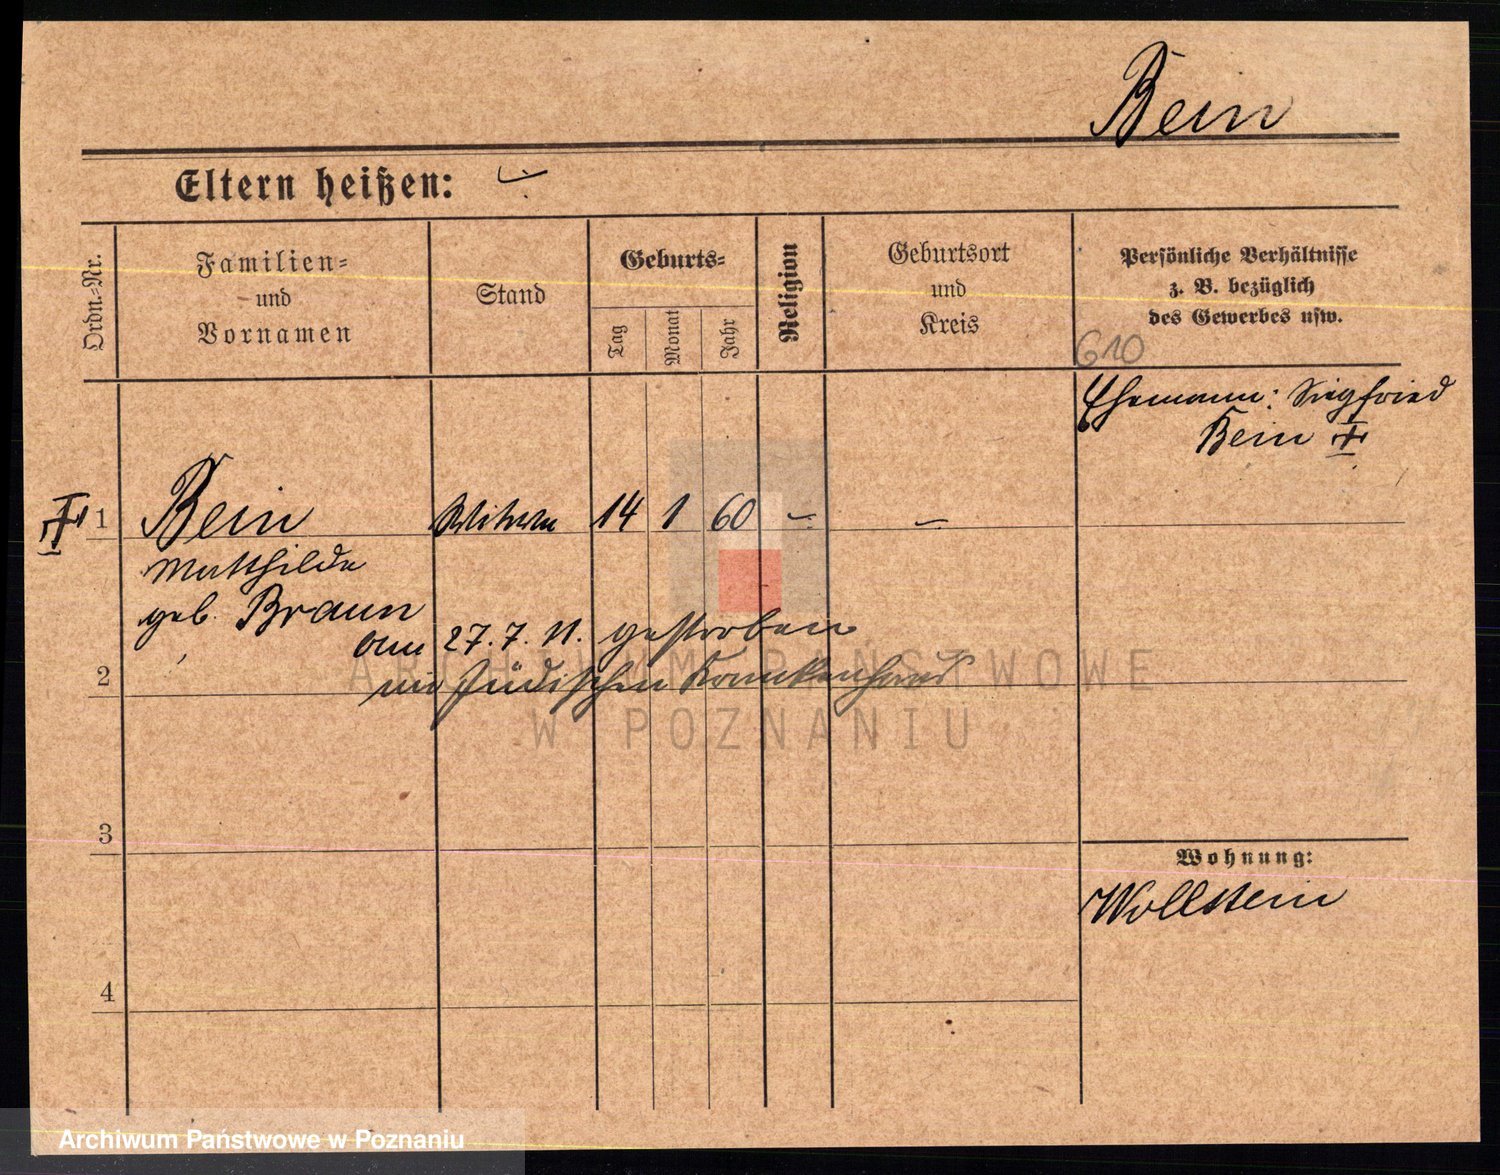 Bein
Eltern heißen: -
Ordn.-Nr.
Familien-
und
Vornamen
Stand
Geburts-
Tag
Monat
Jahr
Religion
Geburtsort
und
Kreis
Persönliche Verhältnisse
z. B. bezüglich
des Gewerbes usw.
610
Ehemann: Siegfried
Bein †
† 1 Bein Witwe 14 1 60 - -
Matthilde
geb. Braun
am 27. 7. 11. gestorben
2 im jüdischen Krankenhaus
3
Wohnung:
Wollstein
4
ARCHIWUM PAŃSTWOWE
W POZNANIU
Archiwum Państwowe w Poznaniu